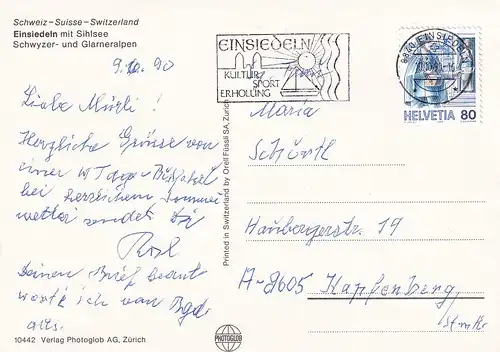 Schweiz - Suisse - Switzerland
Einsiedeln mit Sihlsee
Schwyzer- und Glarneralpen
9. 10. 90
Liebe
Herzliche Grüsse von
einer Tage
bei herrlichem
wetter sendet Dir
Rosl
Deinen Brief beant
worte ich von Bgd.
aus.
10442 Verlag Photoglob AG, Zürich
Printed in Switzerland by Orell Füssli SA, Zürich
PHOTOGLOB
EINSIEDELN
KULTUR
SPORT
ERHOLUNG
8840 EINSIEDELN
HELVETIA 80
Maria
Haubergerstr. 19
A-8605 Kapfenberg
Stmk